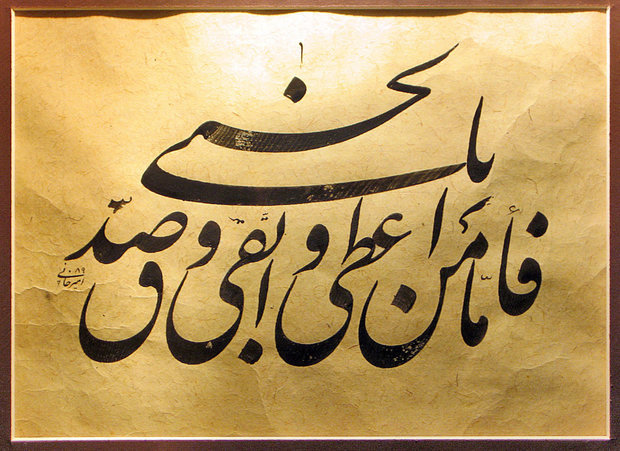 فأمّا من اعطی و اتقی و صدّق
بالحسنی
امیرخانی ۸۹